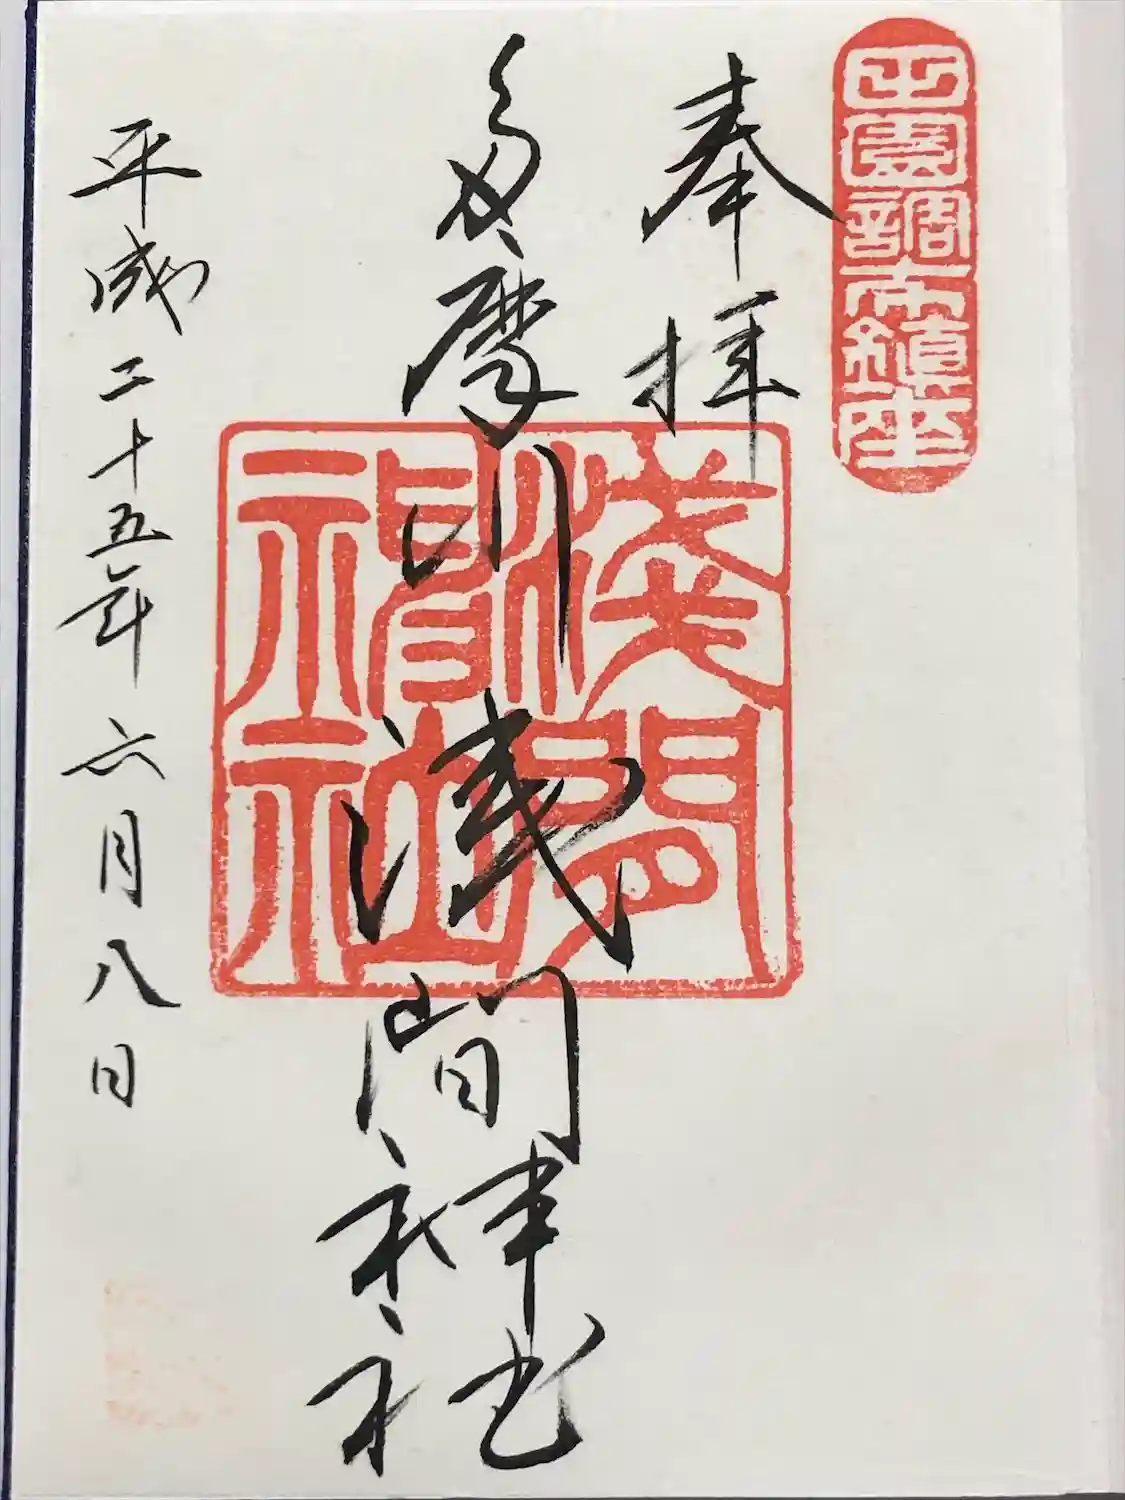 田園調布鎮座
奉拝
多摩川浅間神社
淺間
神社
平成二十五年六月八日